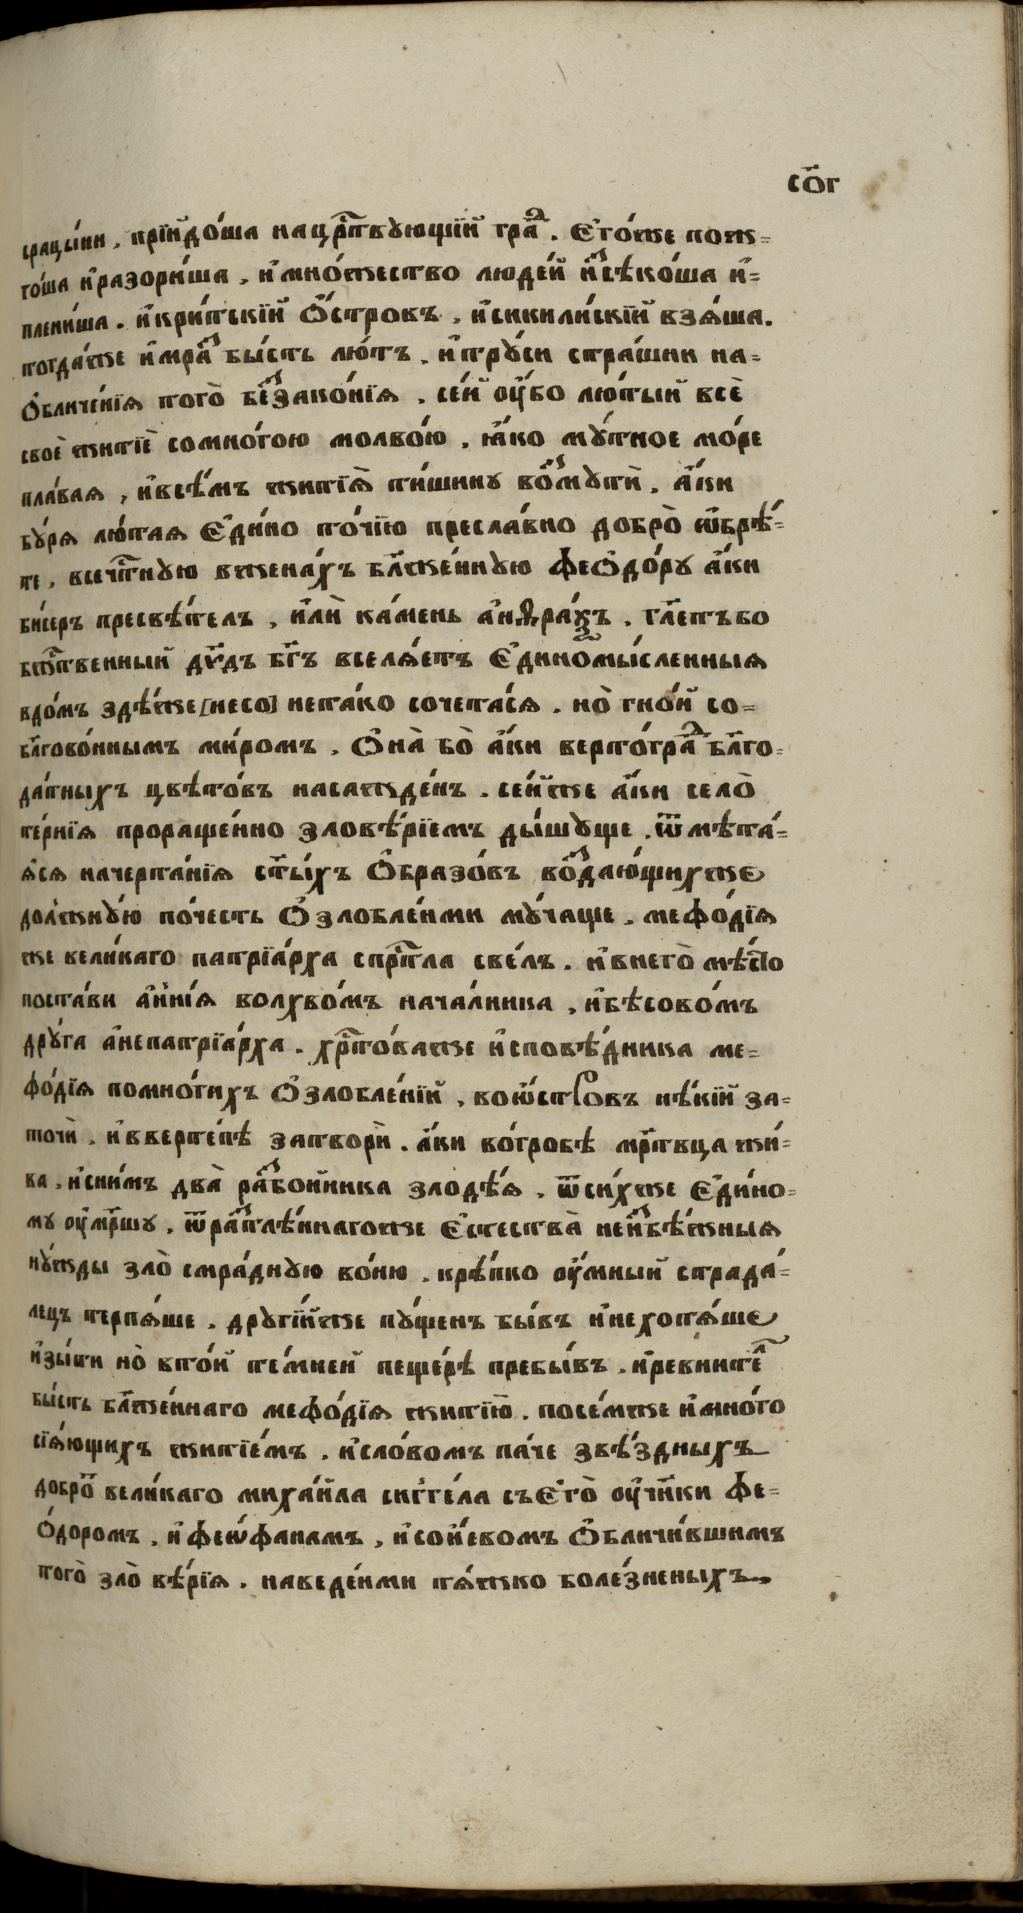 со҃г
срацы́ни , прїидо́ша на црⷭ҇твꙋющїй гра́дъ . Єго́же пож=
го́ша и҆разори́ша , и҆мно́жество люде́й и҆з̾сѣко́ша и҆=
плени́ша . и҆кри́тскїй О҆́стровъ , и҆сикили́скїй взѧ́ша .
тогда́же и҆мра́з̾ бы́сть лю́тъ , и҆трꙋ́си стра́шни на=
О҆бличе́нїѧ того̀ без̾зако́нїѧ , се́й ᲂу҆́бо лю́тый всѐ
своѐ житїѐ сомно́гою молво́ю , ꙗ҆́ко мꙋ́тное мо́ре
пла́ваѧ , и҆все́мъ житїѧ̀ ти́шинꙋ воз̾мꙋтѝ . а҆́ки
бꙋ́рѧ лю́таѧ Є҆ди́но то́чїю пресла́вно добро̀ ѡ҆брѣ́=
те , всечⷭ҇тнꙋю вжена́хъ бл҃же́ннꙋю Ѳео҆до́рꙋ а҆́ки
би́серъ пресвѣ́телъ , и҆лѝ ка́мень а҆́нѳраѯъ . гл҃етъ бо
бж҃твенный дв҃дъ бг҃ъ вселѧ́етъ Є҆диномы́сленныѧ
вдо́мъ здѣ́же [несо] нета́ко сочета́сѧ . но̀ гно́й со=
бл҃гово́ннымъ ми́ромъ . О҆на̀ бо̀ а҆́ки вертогра́дъ бл҃го=
да́тныхъ цвѣто́въ насажде́нъ . се́йже а҆́ки село̀
те́рнїѧ прораще́нно злове́рїемъ ды́шꙋще . ѿмѣта́=
ѧ҆сѧ начерта́нїѧ ст҃ы́хъ О҆́бразовъ воз̾даю́щихже
до́лжнꙋю по́честь О҆злобле́ньми мꙋ́чаше . меѳо́дїѧ
же вели́каго патрїа́рха спрⷭ҇то́ла све́лъ . и҆внего̀ мѣ́сто
поста́ви а҆́ннїѧ волхво́мъ нача́лника , и҆бѣсово́мъ
дрꙋ́га а҆непатрїа́рха . хрⷭ҇то́важе и҆сповѣ́дника ме=
ѳо́дїѧ помно́гихъ О҆злобле́нїй , воѡ҆́стровъ нѣ́кїй за=
точѝ , и҆ввертѣ́пѣ затворѝ . а҆́ки во́гробѣ мрⷭ҇твца жи́=
ва , и҆сни́мъ два̀ раз̾бо́йника злодѣ́ѧ . ѿси́хже Є҆ди́но=
мꙋ ᲂу҆ме́ршꙋ , ѿраз̾тлѣ́ннагоже Є҆стества̀ неи҆з̾бѣ́жныѧ
нꙋ́жды зло̀ смра́днꙋю во́ню , крѣ́пко ᲂу҆́мный страда́=
лецъ терпѧ́ше . дрꙋгі́йже пꙋ́щенъ бы́въ и҆нехотѧ́ше
и҆зы́ти но̀ вто́й те́мней пеще́рѣ пребы́въ . и҆ревни́тель
бы́сть бл҃же́ннаго меѳо́дїѧ житїю̀ . посе́мже и҆мно́го
сїѧ́ющихъ житїе́мъ , и҆сло́вомъ па́че звѣ́здныхъ
добро́тъ вели́каго миха́ила сиг̾ге́ла съЄго̀ ᲂу҆чн҃ки Ѳе=
О҆́доромъ , и҆Ѳеѡ҆фа́намъ , и҆сои҆́евомъ О҆бличи́вшимъ
того̀ зло̀ вѣ́рїѧ . наведе́ньми тѧ́жко боле́зненыхъ ,